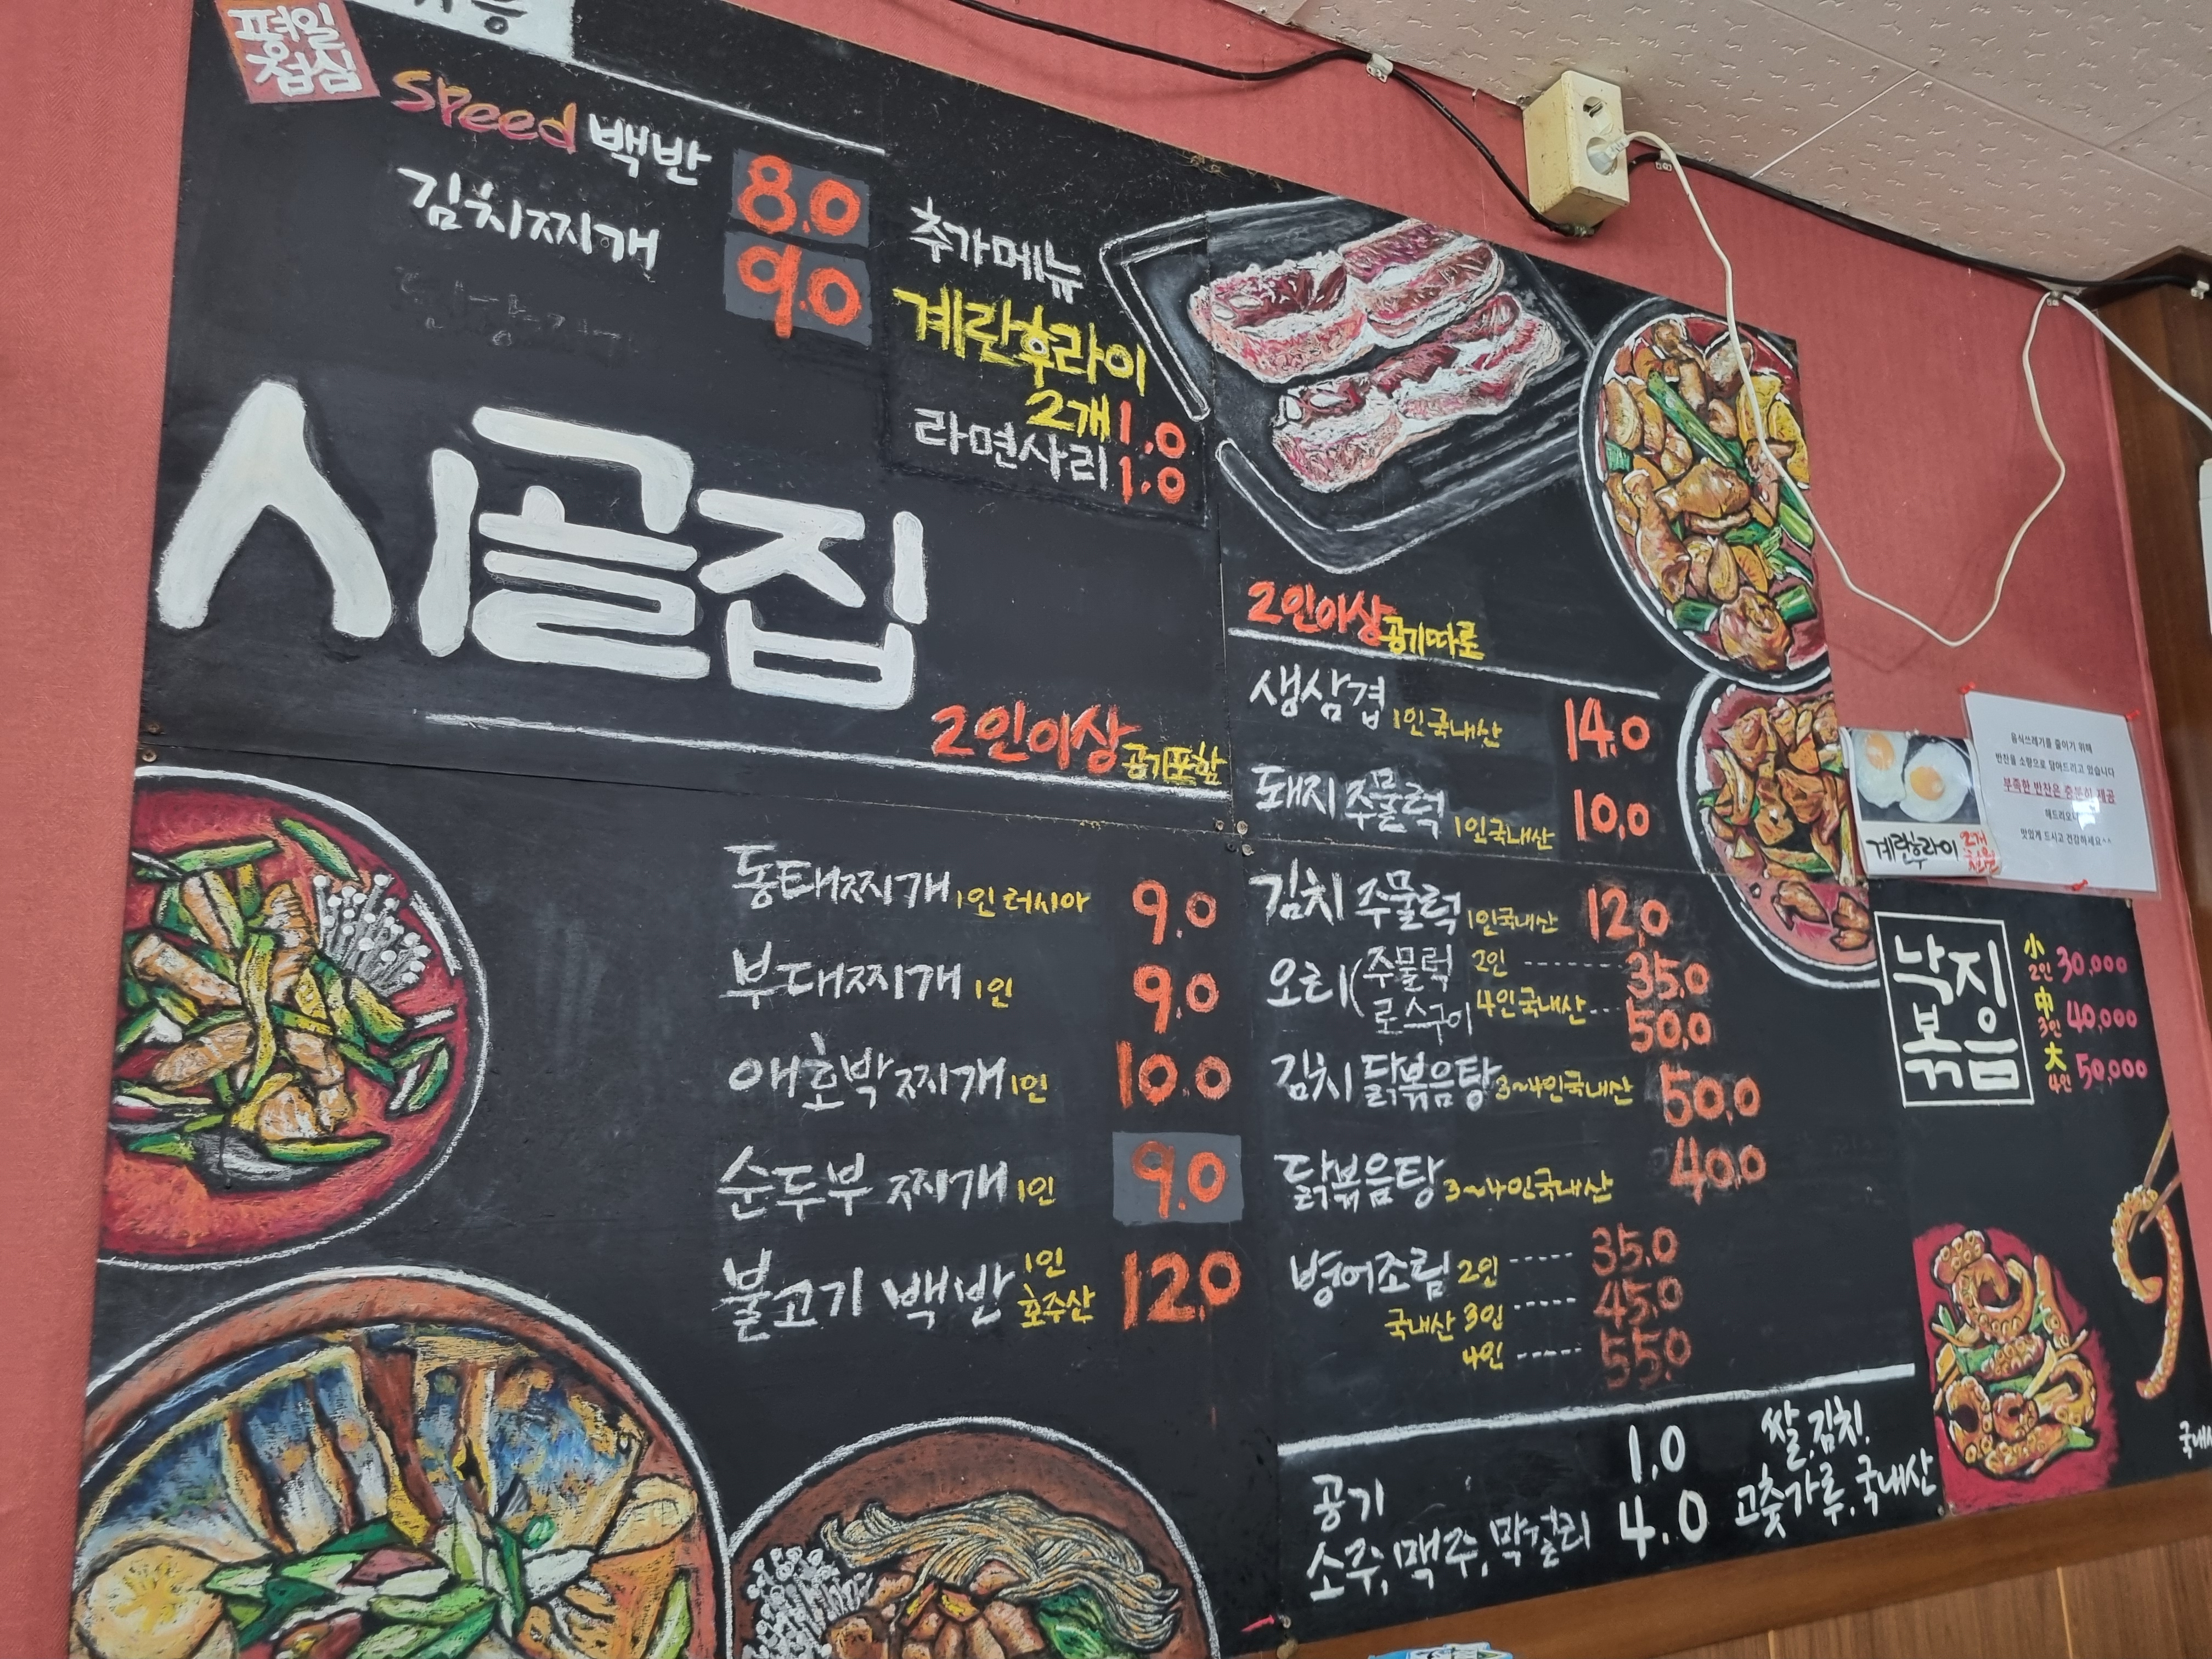 평일
점심
Speed 백반 8.0
김치찌개 9.0
추가메뉴
계란후라이
2개 1.0
라면사리 1.0
시골집
2인이상 공기포함
동태찌개 1인 러시아 9.0
부대찌개 1인 9.0
애호박찌개 1인 10.0
순두부 찌개 1인 9.0
불고기 백반 1인 호주산 12.0
2인이상 공기따로
생삼겹 1인국내산 14.0
돼지 주물럭 1인국내산 10.0
김치 주물럭 1인국내산 12.0
오리( 주물럭 2인 ------- 35.0
로스구이 4인국내산--- 50.0
김치 닭볶음탕 3~4인국내산 50.0
닭볶음탕 3~4인국내산 40.0
병어조림 2인 ----- 35.0
국내산 3인 ----- 45.0
4인 ----- 55.0
공기 1.0
소주, 맥주, 막걸리 4.0
쌀, 김치,
고춧가루, 국내산
계란후라이 2개 천원
음식쓰레기를 줄이기 위해
반찬을 소량으로 담아드리고 있습니다
부족한 반찬은 충분히 제공
해드리오니
맛있게 드시고 건강하세요^^
낙지
볶음
小 2인 30,000
中 3인 40,000
大 4인 50,000